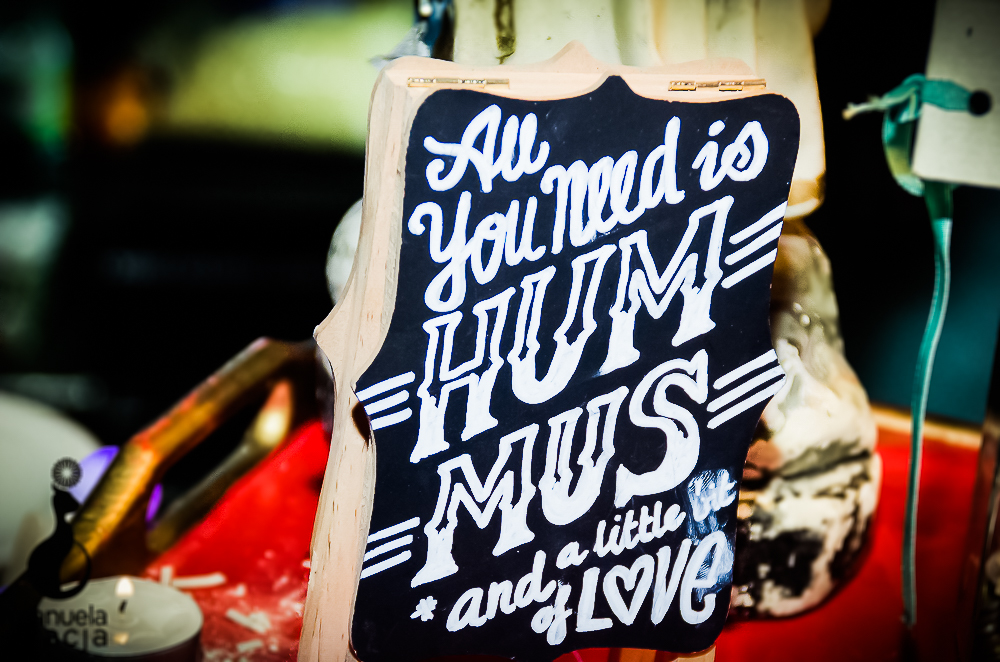 All
You need is
HUM
MUS
and a little bit
of LOVE